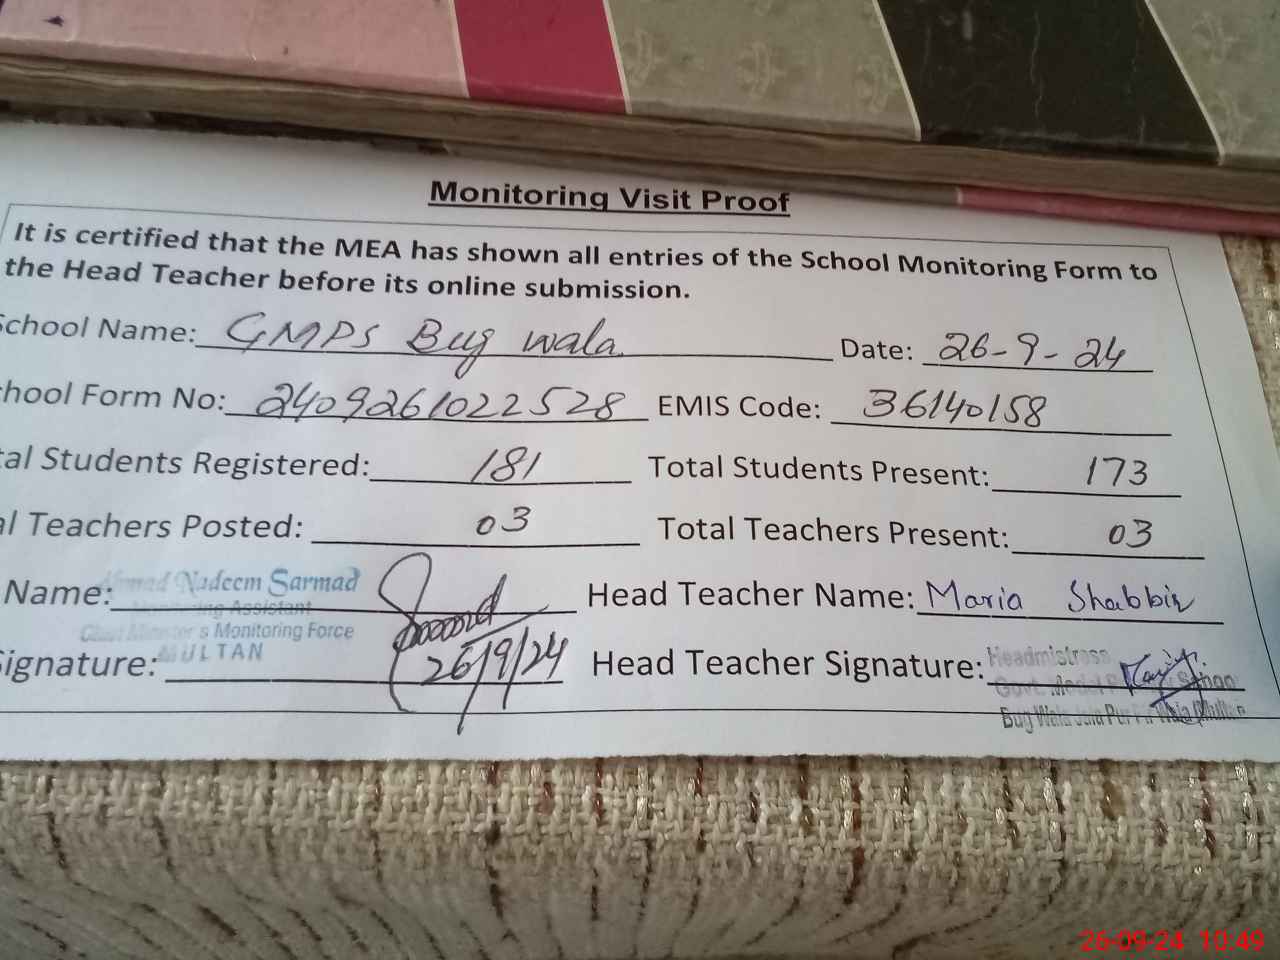 Monitoring Visit Proof
It is certified that the MEA has shown all entries of the School Monitoring Form to
the Head Teacher before its online submission.
School Name: GMPS Bug wala Date: 26-9-24
hool Form No: 2409261022528 EMIS Code: 36140158
tal Students Registered: 181 Total Students Present: 173
al Teachers Posted: 03 Total Teachers Present: 03
Name: Ahmad Nadeem Sarmad Head Teacher Name: Maria Shabbir
Monitoring Assistant
Chief Minister's Monitoring Force
MULTAN
ignature: 26/9/24 Head Teacher Signature: Headmistress
Govt. Model
Bug Wala Jala Pur Wala Multan
26-09-24 10:49